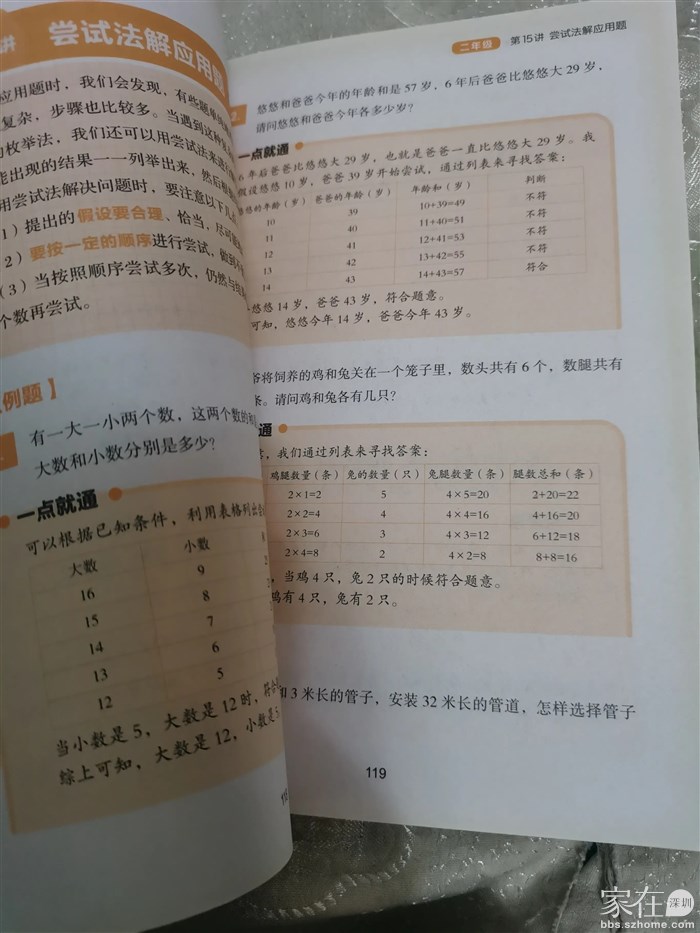 讲 尝试法解应用题
应用题时，我们会发现，有些题
复杂，步骤也比较多。当遇到这种
的枚举法，我们还可以用尝试法来
能出现的结果一一列举出来，然后
用尝试法解决问题时，要注意以下几
1）提出的假设要合理、恰当，尽可能
2）要按一定的顺序进行尝试，做到
（3）当按照顺序尝试多次，仍然与
个数再尝试。
例题】
有一大一小两个数，这两个数的
大数和小数分别是多少？
一点就通
可以根据已知条件，利用表格列出
大数 小数
16 9
15 8
14 7
13 6
12 5
当小数是5，大数是12时，符合
综上可知，大数是12，小数是5
二年级 第15讲 尝试法解应用题
2. 悠悠和爸爸今年的年龄和是57岁，6年后爸爸比悠悠大29岁，
请问悠悠和爸爸今年各多少岁？
一点就通
6年后爸爸比悠悠大29岁，也就是爸爸一直比悠悠大29岁。我
假设悠悠10岁，爸爸39岁开始尝试，通过列表来寻找答案：
悠悠的年龄（岁） 爸爸的年龄（岁） 年龄和（岁） 判断
10 39 10+39=49 不符
11 40 11+40=51 不符
12 41 12+41=53 不符
13 42 13+42=55 不符
14 43 14+43=57 符合
悠悠14岁，爸爸43岁，符合题意。
可知，悠悠今年14岁，爸爸今年43岁。
爷将饲养的鸡和兔关在一个笼子里，数头共有6个，数腿共有
条。请问鸡和兔各有几只？
通
，我们通过列表来寻找答案：
鸡腿数量（条） 兔的数量（只） 兔腿数量（条） 腿数总和（条）
2×1=2 5 4×5=20 2+20=22
2×2=4 4 4×4=16 4+16=20
2×3=6 3 4×3=12 6+12=18
2×4=8 2 4×2=8 8+8=16
，当鸡4只，兔2只的时候符合题意。
鸡有4只，兔有2只。
和3米长的管子，安装32米长的管道，怎样选择管子
119
家在深圳
bbs.szhome.com